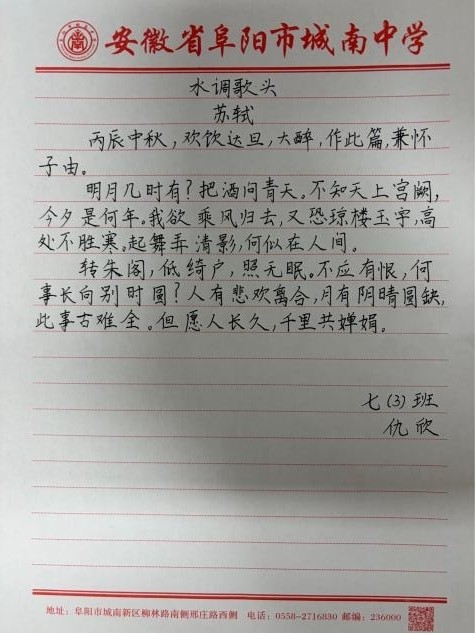 安徽省阜阳市城南中学
水调歌头
苏轼
丙辰中秋，欢饮达旦，大醉，作此篇，兼怀
子由。
明月几时有？把酒问青天。不知天上宫阙，
今夕是何年。我欲乘风归去，又恐琼楼玉宇，高
处不胜寒。起舞弄清影，何似在人间。
转朱阁，低绮户，照无眠。不应有恨，何
事长向别时圆？人有悲欢离合，月有阴晴圆缺，
此事古难全。但愿人长久，千里共婵娟。
七(3)班
仇欣
地址：阜阳市城南新区柳林路南侧邢庄路西侧 电话：0558-2716830 邮编：236000